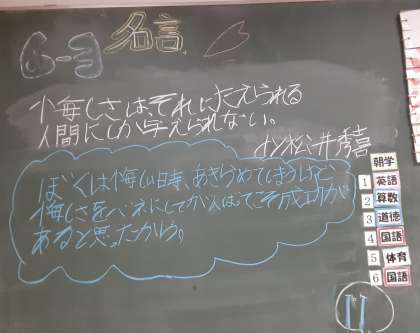 6-3
名言
悔しさは、それにたえられる
人間にしか与えられない。
松井秀喜
ぼくは悔しい時、あきらめてしまうけど
悔しさをバネにして
あると思ったから。
朝学
1 英語
2 算数
3 道徳
4 国語
5 体育
6 国語